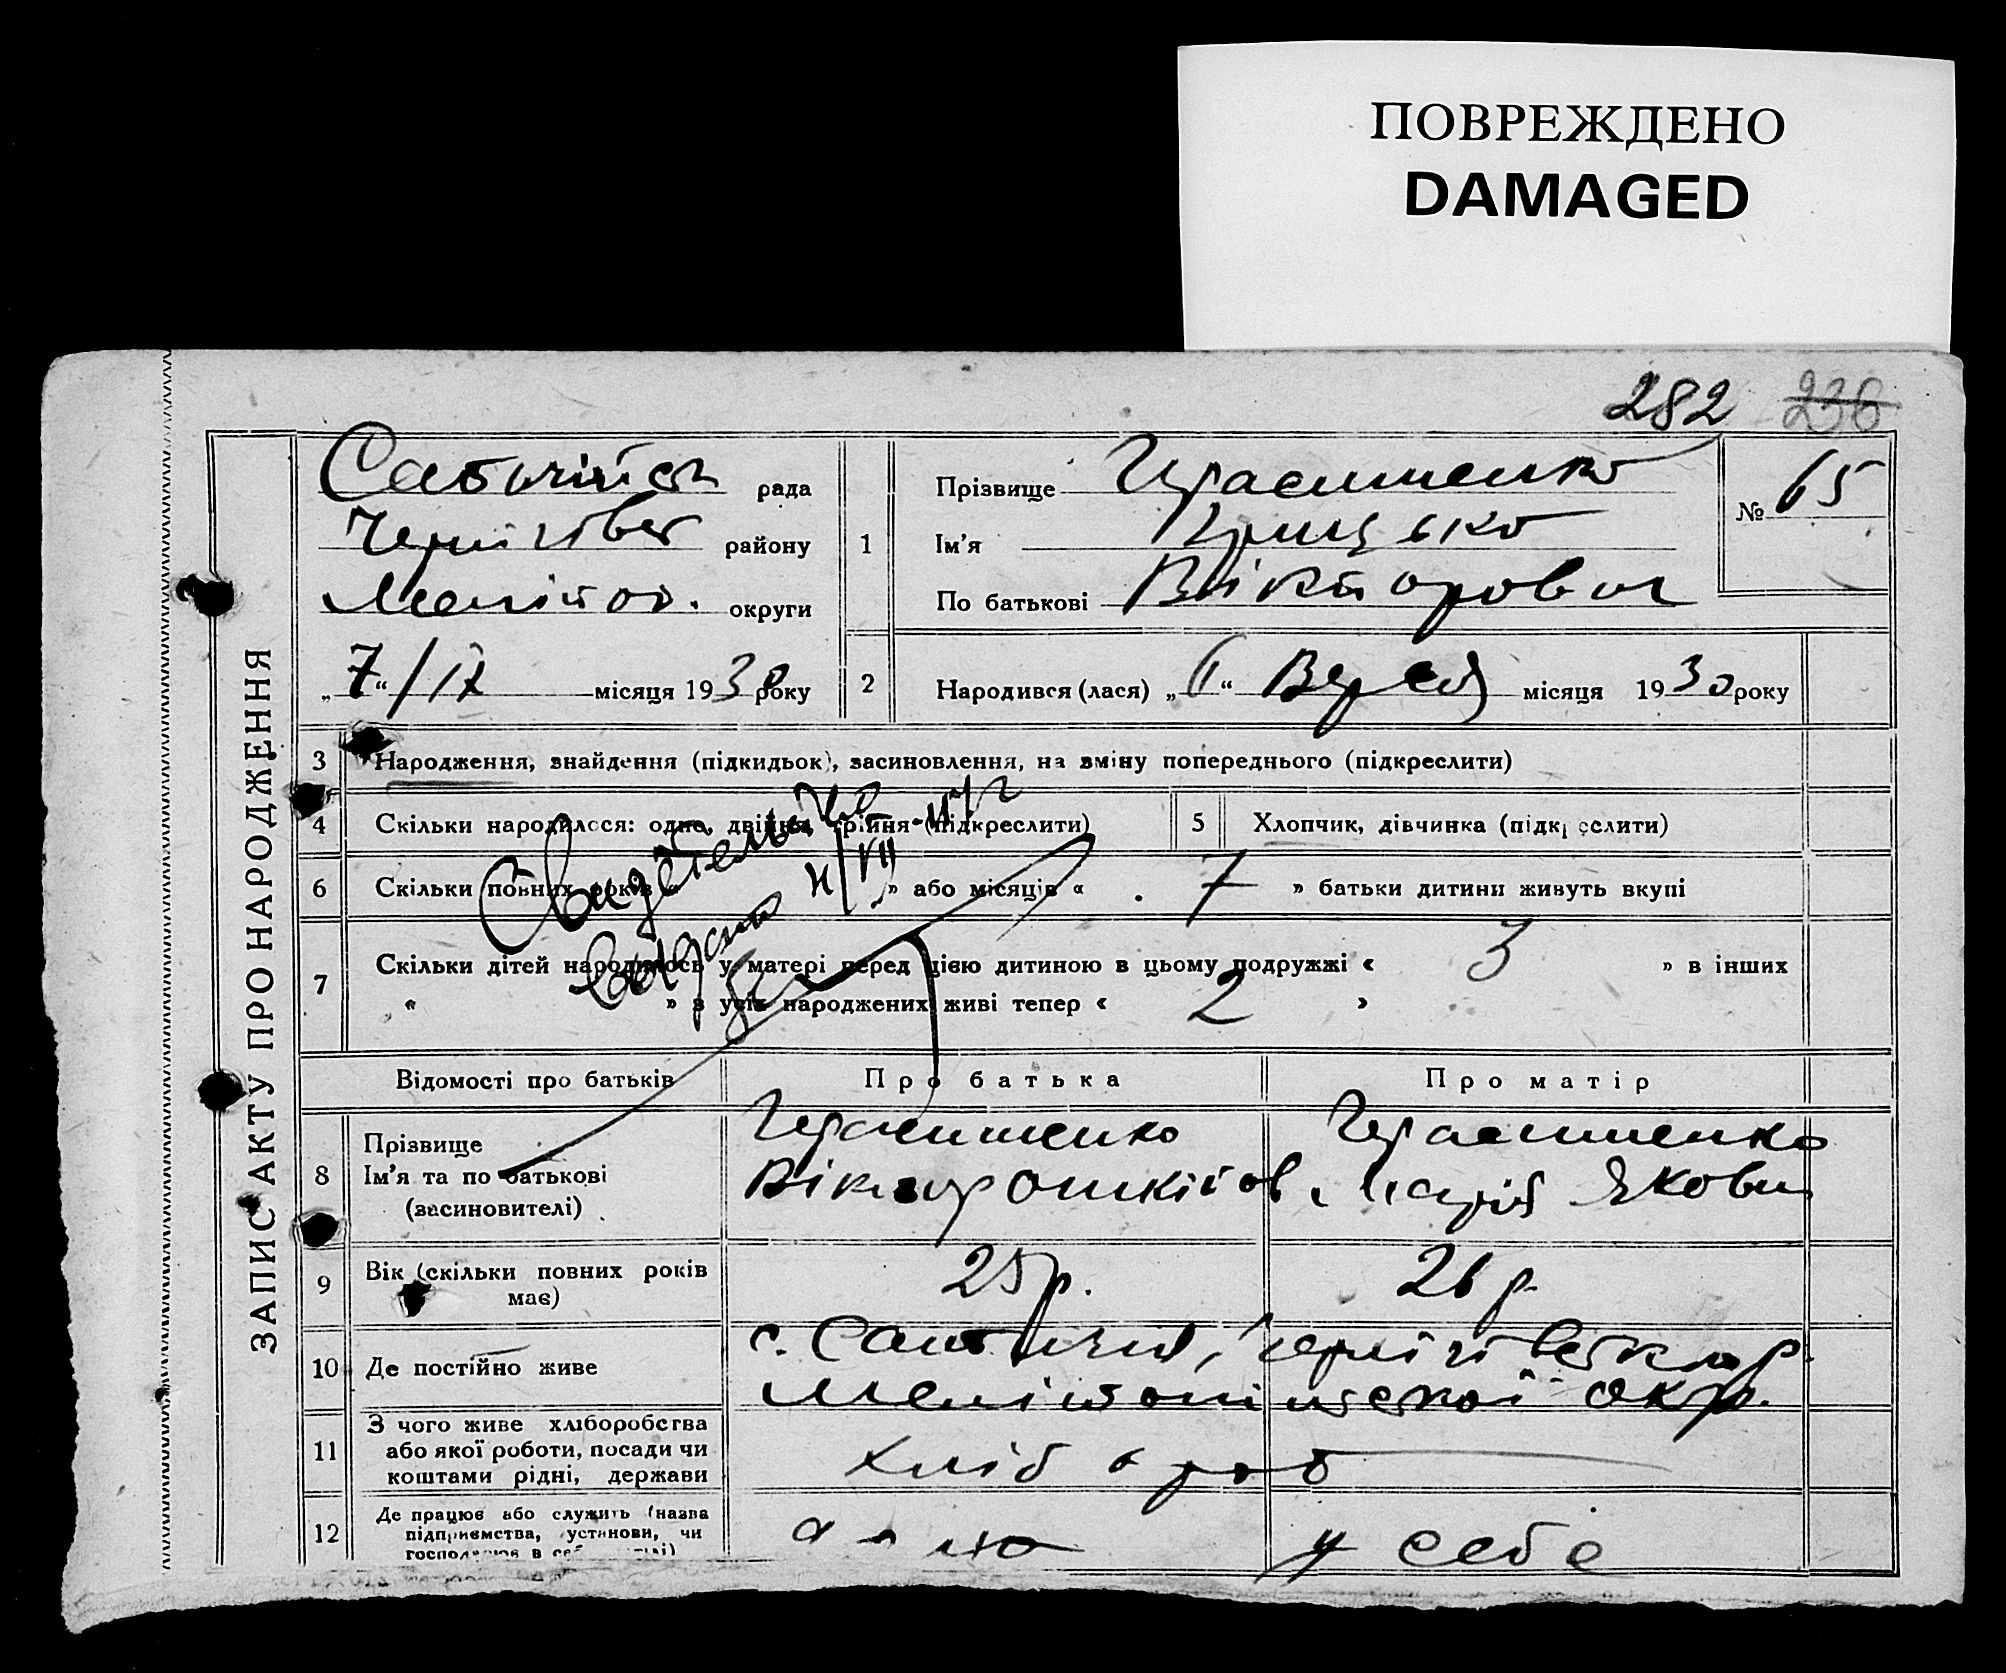 ПОВРЕЖДЕНО
DAMAGED
282 236
ЗАПИС АКТУ ПРО НАРОДЖЕННЯ
рада
району
Мелітоп. округи
„7“/ІХ місяця 1930 року
1 Прізвище Герасименко
Ім’я Грицько
По батькові Вікторович
№ 65
2 Народився (лася) „6“ Верес місяця 1930 року
3 Народження, знайдення (підкидьок), засиновлення, на зміну попереднього (підкреслити)
4 Скільки народилося: одно, двійня, трійня (підкреслити) 5 Хлопчик, дівчинка (підкреслити)
Свидетельство
6 Скільки повних років « » або місяців « 7 » батьки дитини живуть вкупі
7 Скільки дітей народилось у матері перед цією дитиною в цьому подружжі « 3 » в інших
« » з усіх народжених живі тепер « 2 »
Відомості про батьків Про батька Про матір
8 Прізвище Герасименко Герасименко
Ім’я та по батькові Марія Яковл
(засиновителі)
9 Вік (скільки повних років має) 25 р. 26 р.
10 Де постійно живе с.
Мелітопільської окр.
11 З чого живе хліборобства або якої роботи, посади чи коштами рідні, держави хлібороб
12 Де працює або служить (назва підприємства, установи, чи у себе